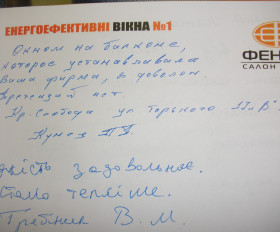 ЕНЕРГОЕФЕКТИВНІ ВІКНА №1
ФЕН
САЛОН
Окном на балконе,
которое устанавливала
Ваша фирма, я доволен.
Претензий нет
Кр. Слобода ул Горького
задовольное.
Стало тепліше.
Гребеник В. М.